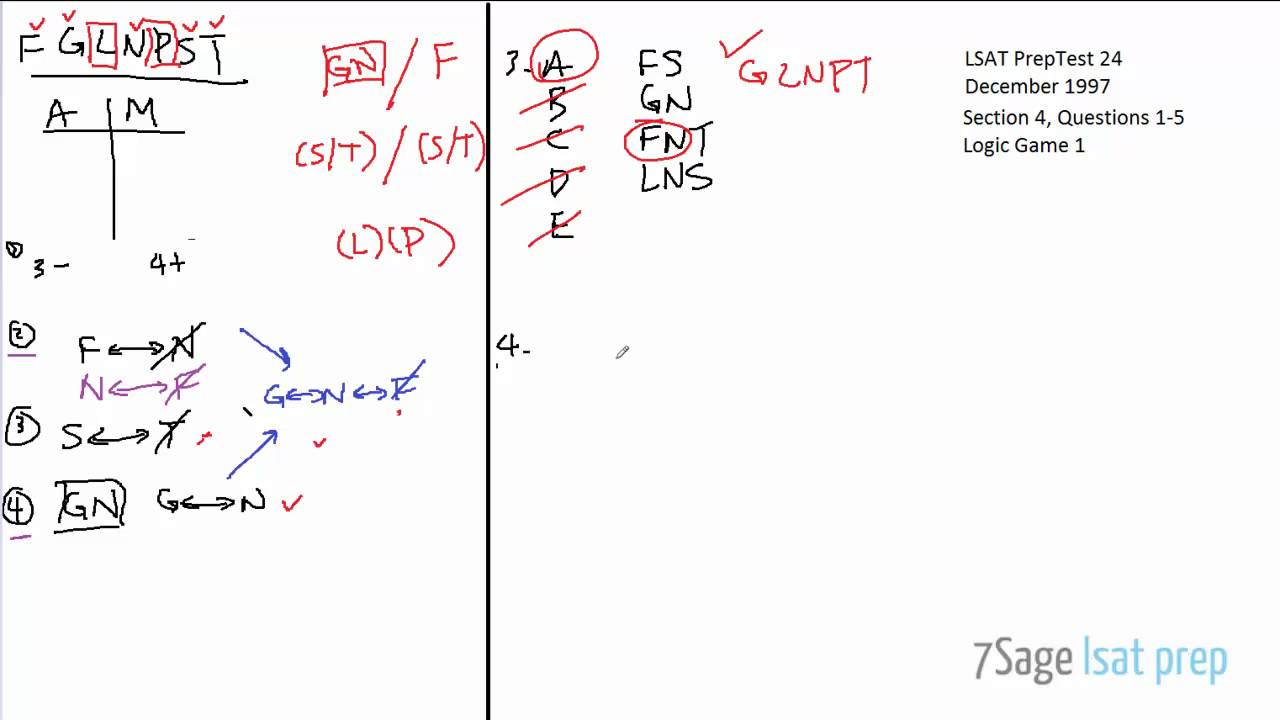 F G L N P S T
A M
① 3- 4+
② F ↔ N
N ↔ F
③ S ↔ T
④ GN G ↔ N
G ↔ N ↔ F
GN / F
(S/T) / (S/T)
(L) (P)
3- A FS ✓ GLNPT
B GN
C FNT
D LNS
E
4-
LSAT PrepTest 24
December 1997
Section 4, Questions 1-5
Logic Game 1
7Sage lsat prep